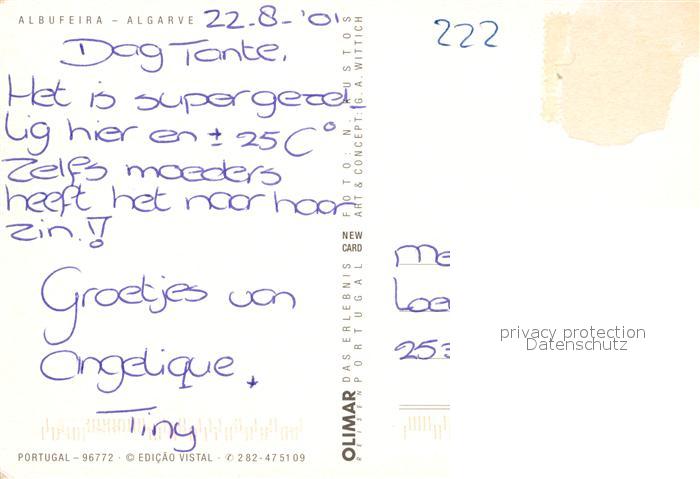 ALBUFEIRA – ALGARVE 22-8-'01
Dag Tante,
Het is supergezel-
lig hier en ± 25 C°
Zelfs moeders
heeft het naar haar
zin!!
Groetjes van
Angelique +
Tiny
PORTUGAL – 96772 · © EDIÇÃO VISTAL · ✆ 282-475109
OLIMAR DAS ERLEBNIS
REISEN PORTUGAL
NEW
CARD
ART & CONCEPT: G. A. WITTICH
222
privacy protection
Datenschutz